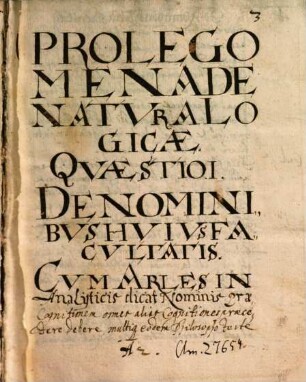 3
PROLEGO
MENA DE
NATVRA LO
GICÆ.
QVÆSTIO I.
DE NOMINI..
BVS HVIVS FA..
CVLTATIS.
CVM ARLES IN
Analisticis dicat Nominis
Cognitionem omnes alias Cognitiones præce
dere debere
Clm. 27654